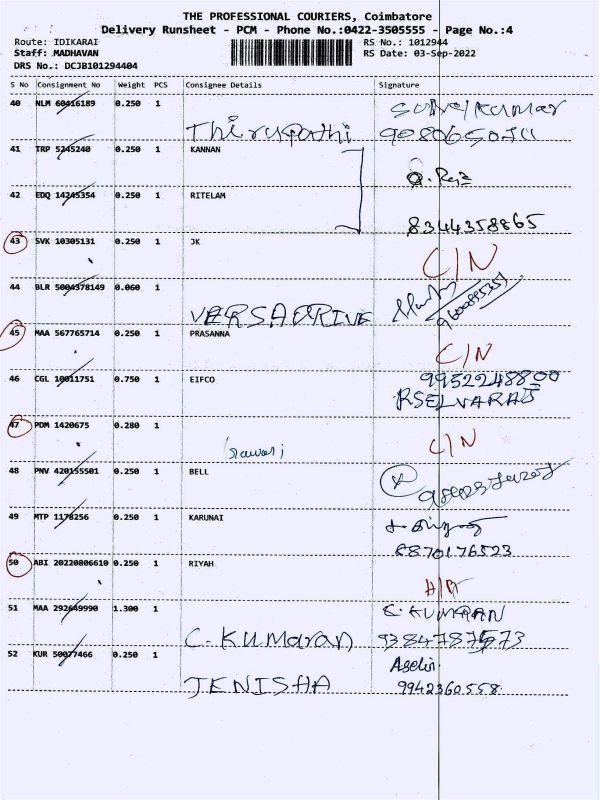 THE PROFESSIONAL COURIERS, Coimbatore
Delivery Runsheet - PCM - Phone No.:0422-3505555 - Page No.:4
Route: IDIKARAI RS No.: 1012944
Staff: MADHAVAN RS Date: 03-Sep-2022
DRS No.: DCJB101294404
S No Consignment No Weight PCS Consignee Details Signature
40 NLM 60416189 0.250 1
Thirupathi
41 TRP 5245240 0.250 1 KANNAN
42 EDQ 14245354 0.250 1 RITELAM
8344358865
43 SVK 10305131 0.250 1 JK C/N
44 BLR 5004378149 0.060 1
VERSADRIVE
45 MAA 567765714 0.250 1 PRASANNA
C/N
46 CGL 10011751 0.750 1 EIFCO 9952248800
RSELVARAJ
47 PDM 1420675 0.280 1 C/N
48 PNV 420155501 0.250 1 BELL
49 MTP 1178256 0.250 1 KARUNAI
8870176523
50 ABI 20220806610 0.250 1 RIYAH
51 MAA 292649990 1.300 1 C. KUMARAN
C. KUMARAN
52 KUR 50077466 0.250 1 Aselin
JENISHA 9942360558